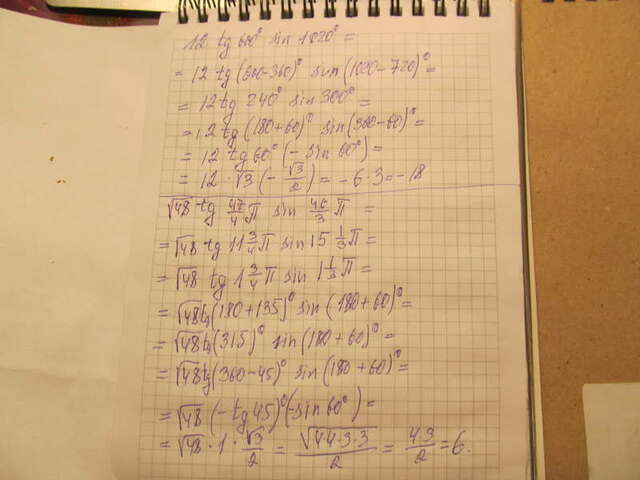 12 tg 600° sin 1020° =
= 12 tg (600-360)° sin (1020-720)° =
= 12 tg 240° sin 300° =
= 12 tg (180+60)° sin (360-60)° =
= 12 tg 60° (- sin 60°) =
= 12 · √3 (- √3/2) = -6·3 = -18
√48 tg 47/4 π sin 46/3 π =
= √48 tg 11 3/4 π sin 15 1/3 π =
= √48 tg 1 3/4 π sin 1 1/3 π =
= √48 tg (180+135)° sin (180+60)° =
= √48 tg (315)° sin (180+60)° =
= √48 tg (360-45)° sin (180+60)° =
= √48 (- tg 45)° (- sin 60°) =
= √48 · 1 · √3/2 = √44·3·3/2 = 4·3/2 = 6.